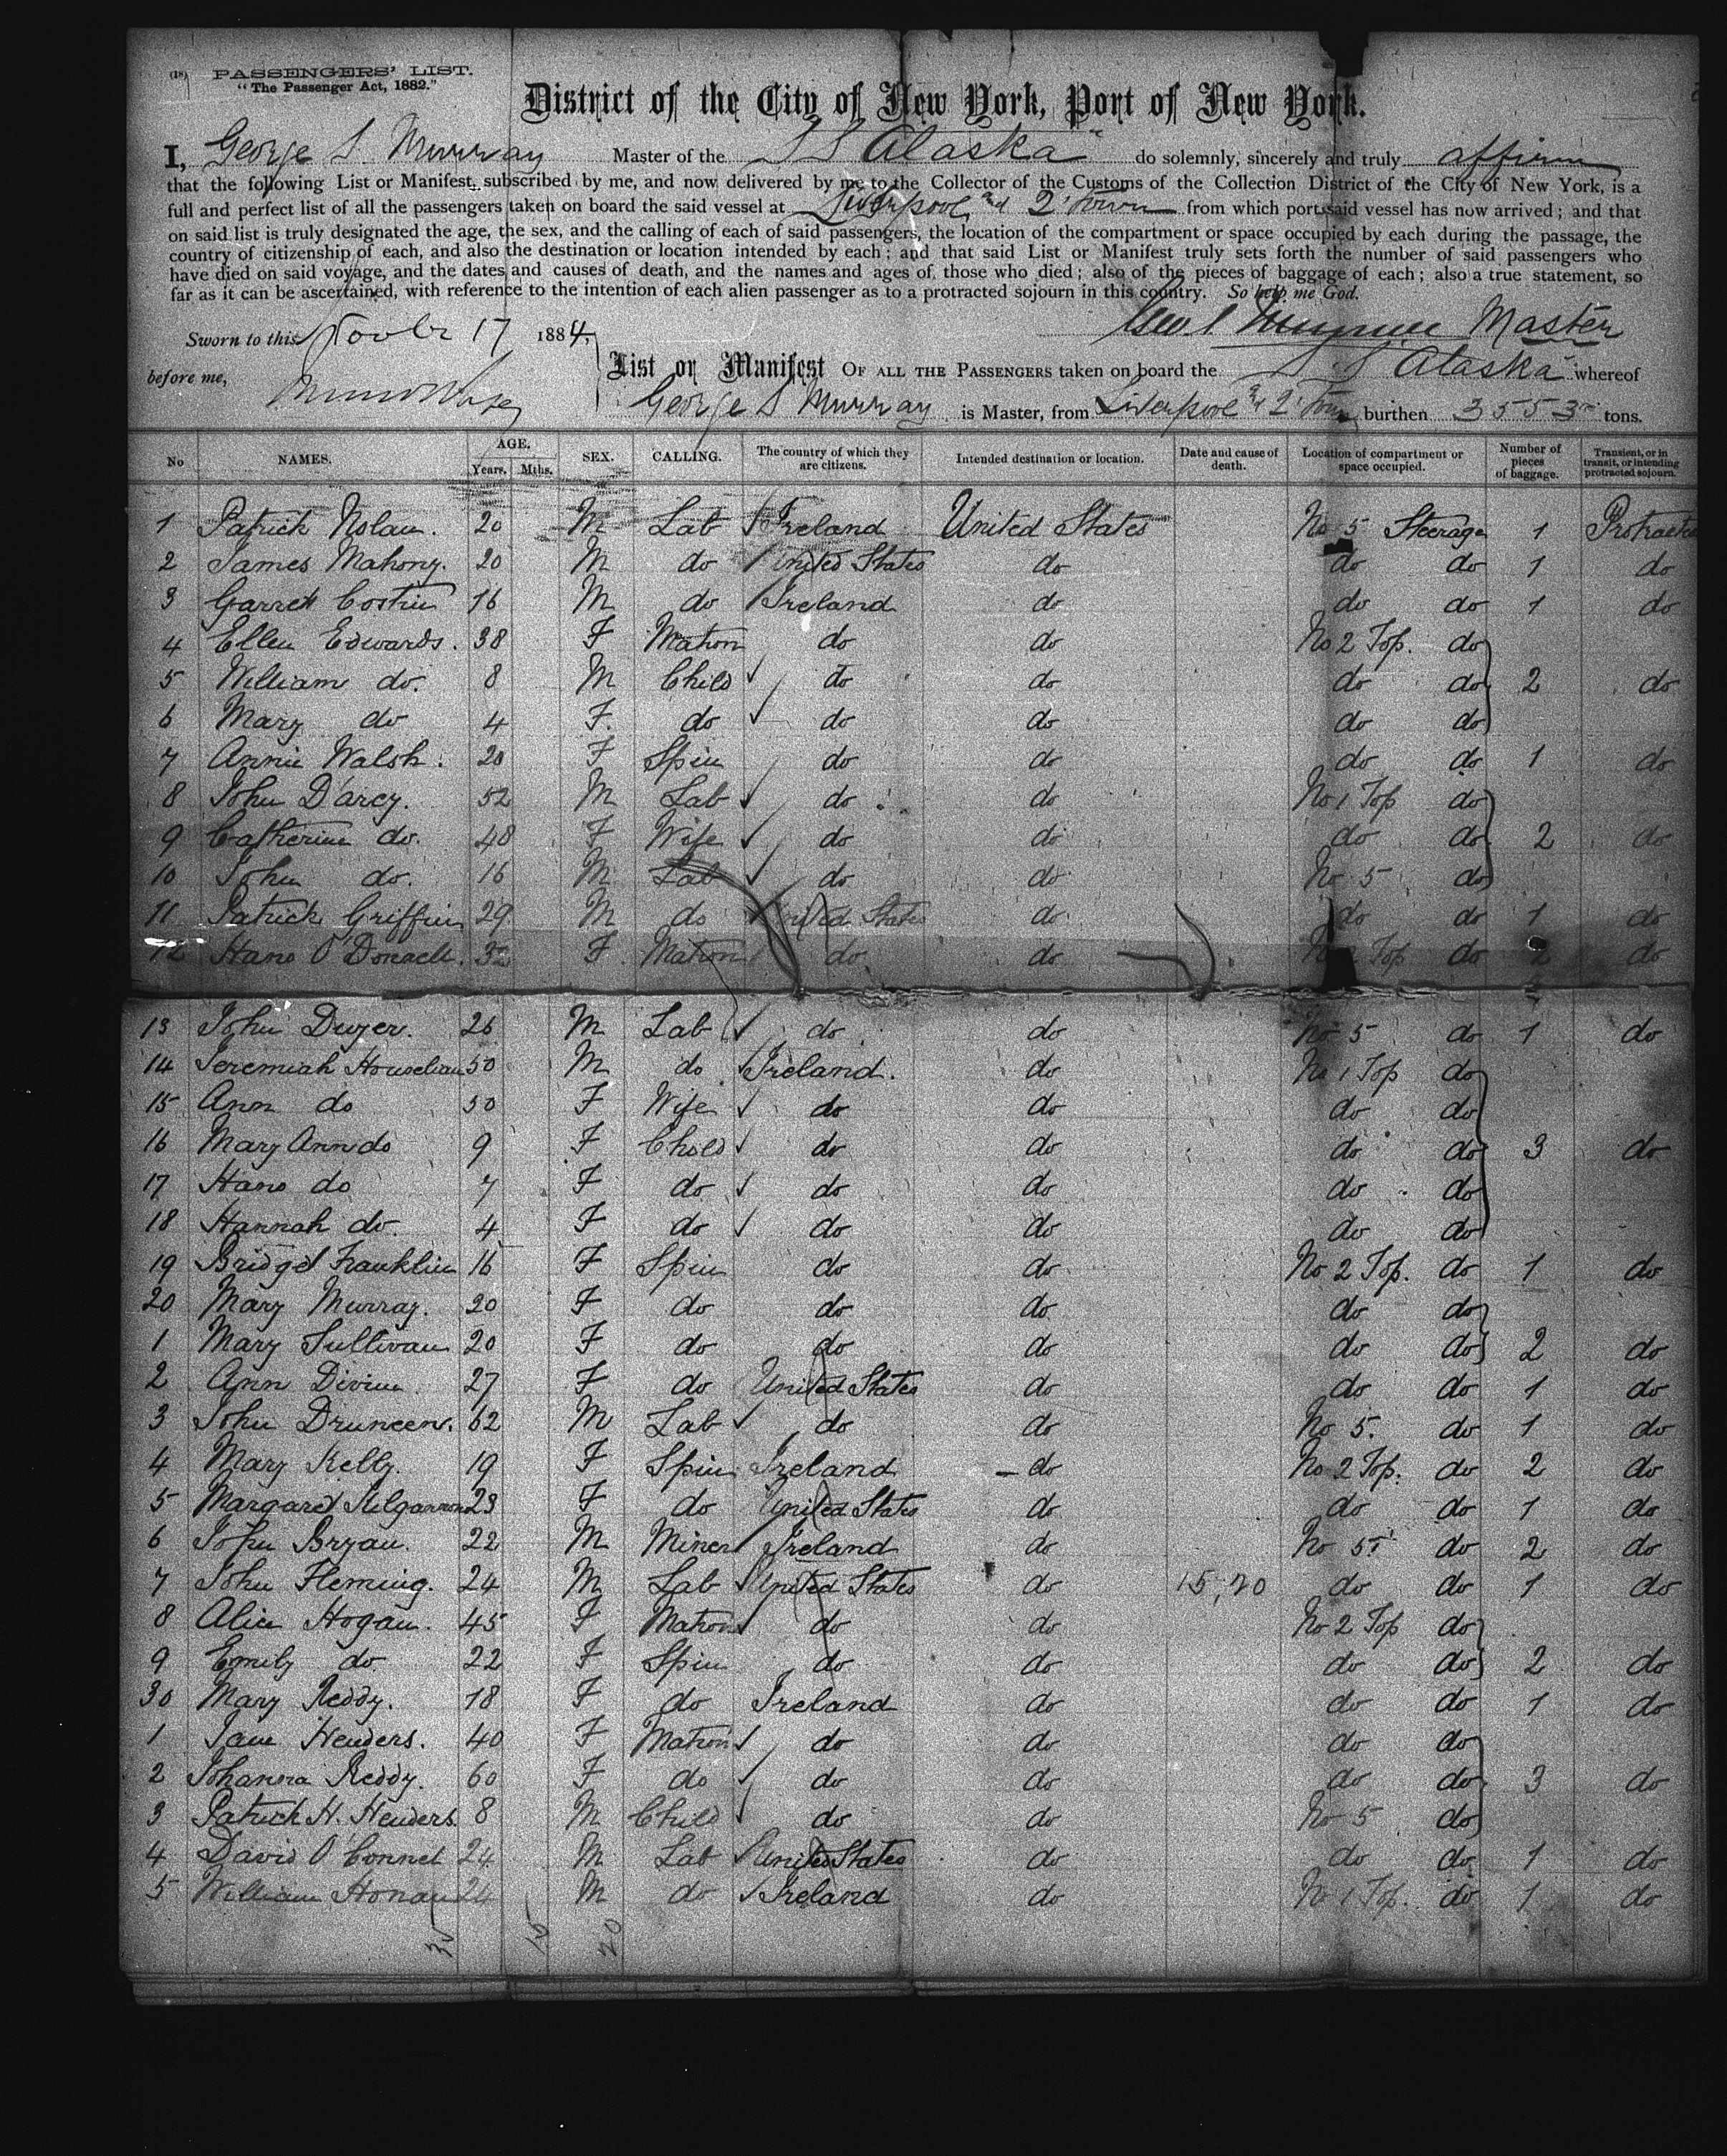 (18) PASSENGERS' LIST.
"The Passenger Act, 1882."
District of the City of New York, Port of New York.
I, George S. Murray Master of the SS Alaska do solemnly, sincerely and truly affirm
that the following List or Manifest, subscribed by me, and now delivered by me to the Collector of the Customs of the Collection District of the City of New York, is a
full and perfect list of all the passengers taken on board the said vessel at Liverpool and Q'Town from which port said vessel has now arrived; and that
on said list is truly designated the age, the sex, and the calling of each of said passengers, the location of the compartment or space occupied by each during the passage, the
country of citizenship of each, and also the destination or location intended by each; and that said List or Manifest truly sets forth the number of said passengers who
have died on said voyage, and the dates and causes of death, and the names and ages of those who died; also of the pieces of baggage of each; also a true statement, so
far as it can be ascertained, with reference to the intention of each alien passenger as to a protracted sojourn in this country. So help me God.
Geo S Murray Master
Sworn to this Novbr 17 1884,
before me,
List or Manifest OF ALL THE PASSENGERS taken on board the S.S Alaska whereof
George S Murray is Master, from Liverpool & Q'Town burthen 3553 tons.
No NAMES. AGE. Years. Mths. SEX. CALLING. The country of which they are citizens. Intended destination or location. Date and cause of death. Location of compartment or space occupied. Number of pieces of baggage. Transient, or in transit, or intending protracted sojourn.
1 Patrick Nolan. 20 M Lab Ireland United States No 5 Steerage 1 Protracted
2 James Mahony. 20 M do United States do do do 1 do
3 Garrett Costin 16 M do Ireland do do do 1 do
4 Ellen Edwards. 38 F Matron do do No 2 Top. do
5 William do. 8 M Child do do do do 2 do
6 Mary do 4 F. do do do do do
7 Annie Walsh. 20 F Spin do do do do 1 do
8 John D'arcy. 52 M Lab do do No 1 Top do
9 Catherine do. 48 F Wife do do do do 2 do
10 John do. 16 M Lab do do No 5 do
11 Patrick Griffin 29 M do United States do do do 1 do
12 Hano O'Donnell. 32 F Matron do do No 2 Top do 2 do
13 John Dwyer. 26 M Lab do do No 5 do 1 do
14 Jeremiah 50 M do Ireland. do No 1 Top do
15 Ann do 50 F Wife do do do do
16 Mary Ann do 9 F Child do do do do 3 do
17 Hano do 7 F do do do do do
18 Hannah do. 4 F do do do do do
19 Bridget Franklin 16 F Spin do do No 2 Top. do 1 do
20 Mary Murray. 20 F do do do do do
1 Mary Sullivan 20 F do do do do do 2 do
2 Ann Divine 27 F do United States do do do 1 do
3 John Druneen. 62 M Lab do do No 5. do 1 do
4 Mary Kelly. 19 F Spin Ireland do No 2 Top. do 2 do
5 Margaret Kilgannon 23 F do United States do do do 1 do
6 John Bryan. 22 M Miner Ireland do No 5 do 2 do
7 John Fleming. 24 M Lab United States do 15,20 do do 1 do
8 Alice Hogan. 45 F Matron do do No 2 Top do
9 Emily do 22 F Spin do do do do 2 do
30 Mary Reddy. 18 F do Ireland do do do 1 do
1 Jane Henders. 40 F Matron do do do do
2 Johanna Reddy. 60 F do do do do do 3 do
3 Patrick H. Henders. 8 M Child do do No 5 do
4 David O'Connel 24 M Lab United States do do do 1 do
5 William Honan 24 M do Ireland do No 1 Top. do 1 do
15 20